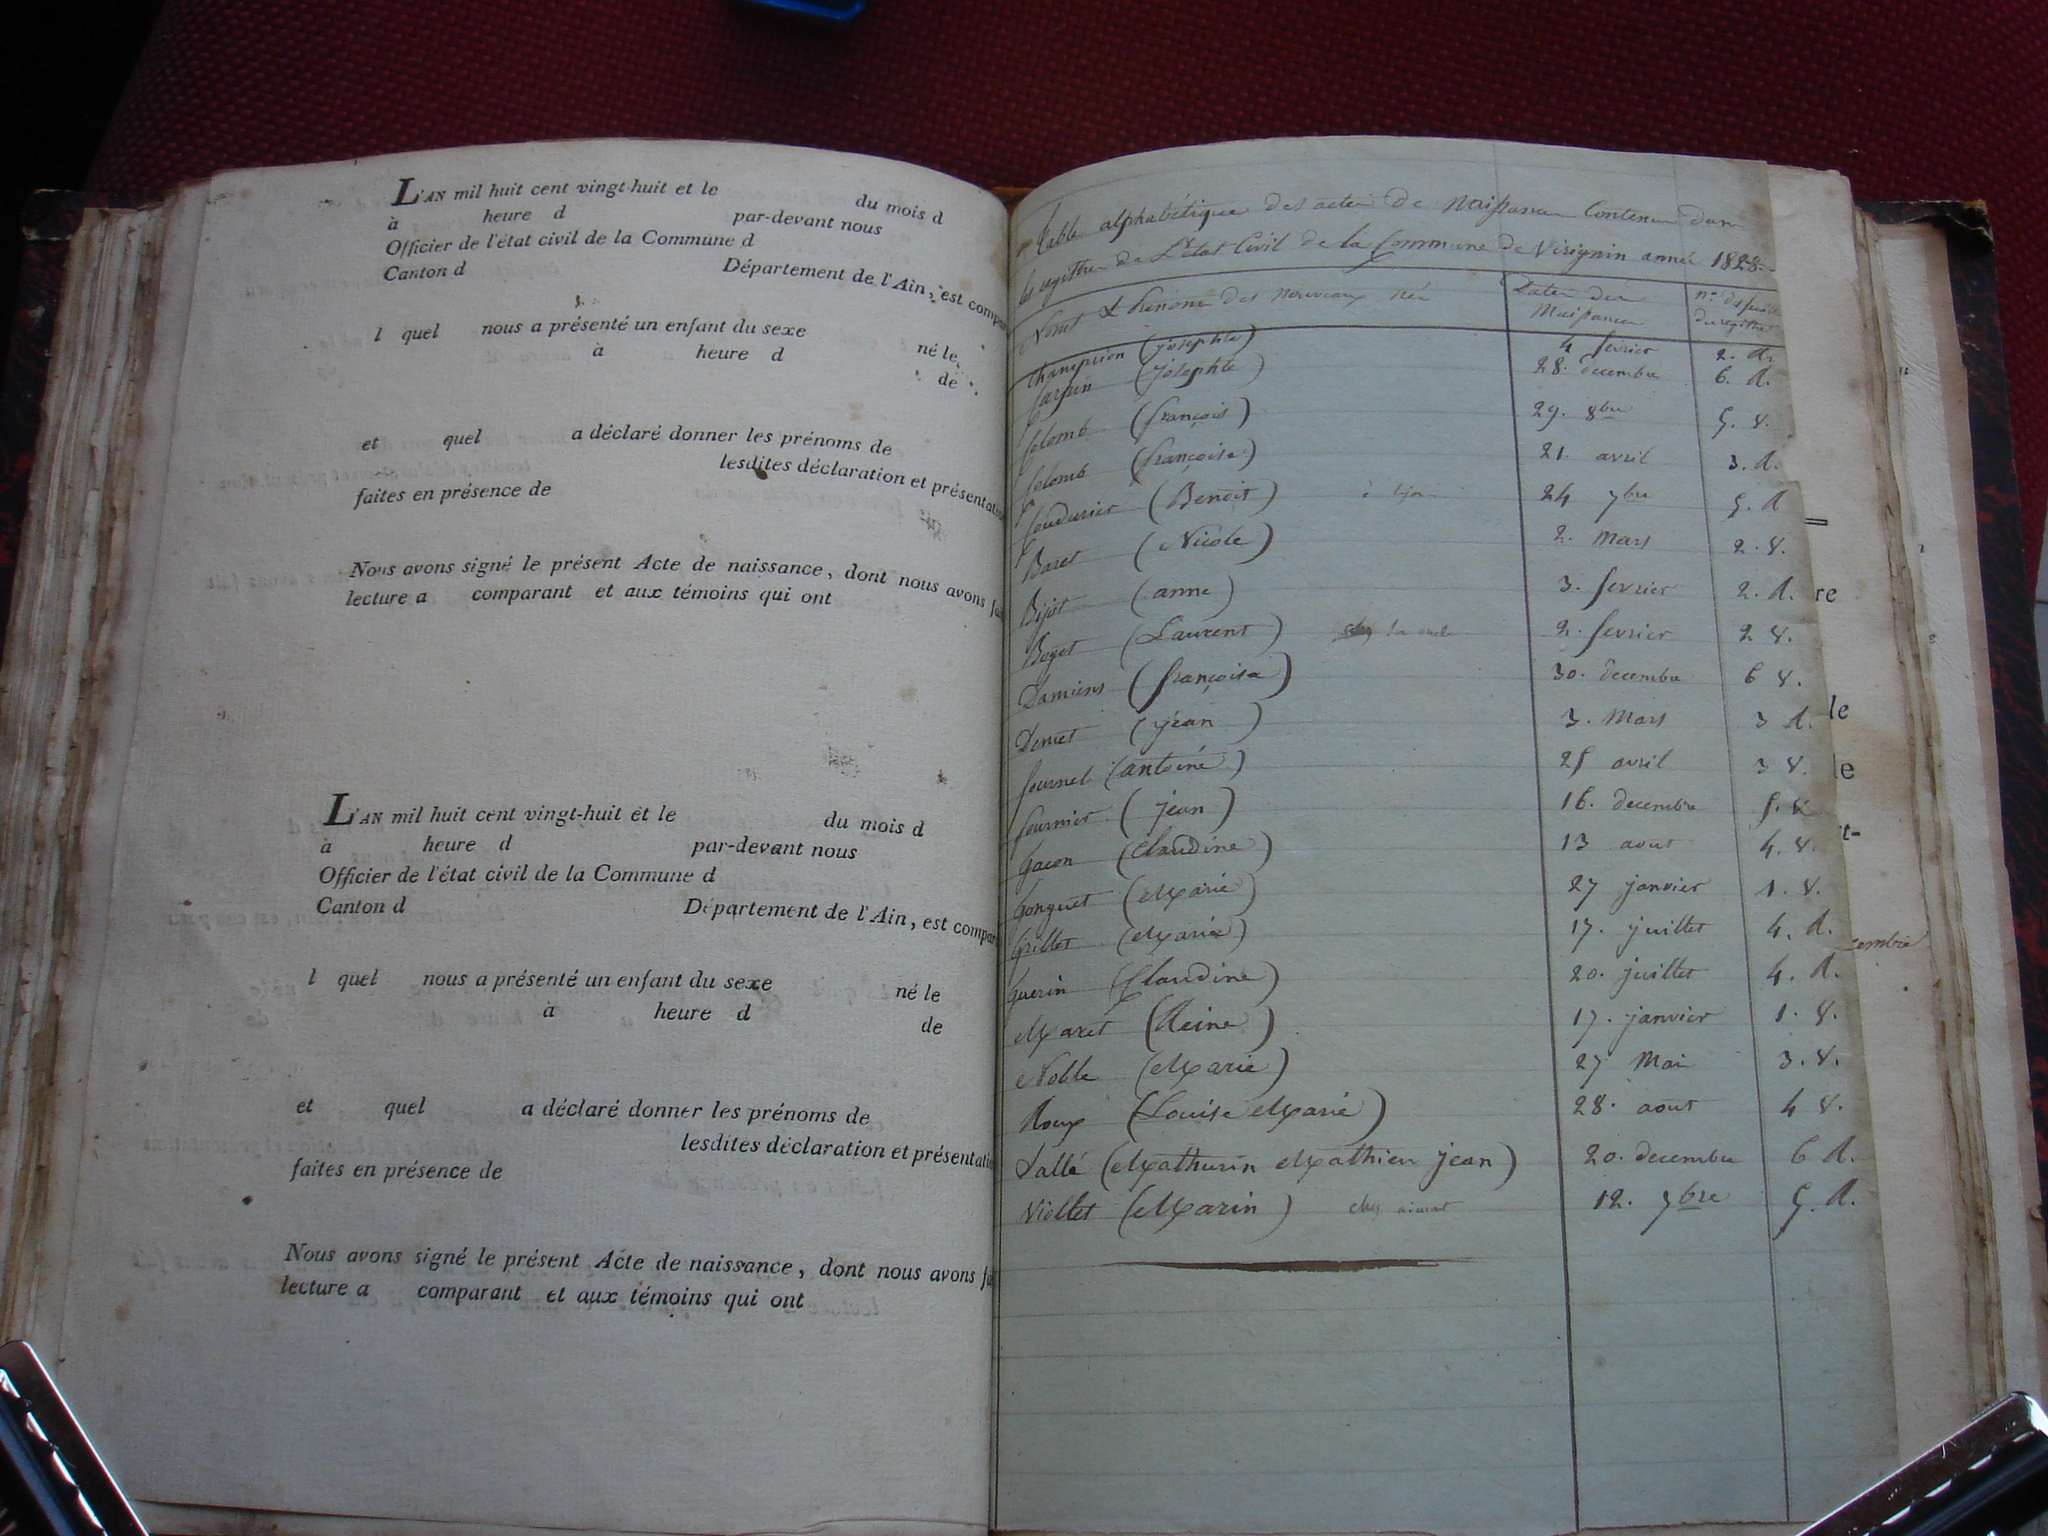 L'AN mil huit cent vingt-huit et le du mois d
à heure d par-devant nous
Officier de l'état civil de la Commune d
Canton d Département de l'Ain, est compar
l quel nous a présenté un enfant du sexe né le
à heure d de
et quel a déclaré donner les prénoms de
lesdites déclaration et présentati
faites en présence de
Nous avons signé le présent Acte de naissance, dont nous avons fai
lecture a comparant et aux témoins qui ont
L'AN mil huit cent vingt-huit et le du mois d
à heure d par-devant nous
Officier de l'état civil de la Commune d
Canton d Département de l'Ain, est compar
l quel nous a présenté un enfant du sexe né le
à heure d de
et quel a déclaré donner les prénoms de
lesdites déclaration et présentati
faites en présence de
Nous avons signé le présent Acte de naissance, dont nous avons fai
lecture a comparant et aux témoins qui ont
Table alphabétique des actes de Naissance Contenu dans
les registres de L'Etat Civil de la Commune de Virignin année 1828
Noms & Prénoms des nouveaux nés Dates des Naissances n.os des feuillets du registre
Champion (josephte) 4 fevrier 2. R.
(josephte) 28. decembre 6. R.
Colomb (françois) 29. 8bre 5. V.
Colomb (françoise) 21 avril 3. R.
Coudurier (Benoit) 24 7bre 5. R
Baret (Nicole) 2. Mars 2. V.
Bijot (anne) 3. fevrier 2. R.
Boget (Laurent) 2. fevrier 2 V.
Damiens (françoise) 30. decembre 6 V.
(jean) 3. Mars 3 R.
fournel (antoine) 25 avril 3 V.
fournier (jean) 16. decembre 5.
Gacon (Claudine) 13 aout 4. V.
Gonguet (Marie) 27 janvier 1. V.
Grillet (Marie) 17. juillet 4. R.
Guerin (Claudine) 20. juillet 4. R.
Maret (Reine) 17. janvier 1. V.
Noble (Marie) 27 Mai 3. V.
Roux (Louise Marie) 28. aout 4 V.
Lallé (Mathurin Mathieu jean) 20. decembre 6 R.
Viollet (Marin) chez 12. 7bre 5. R.
re
le
le
t-
cembre